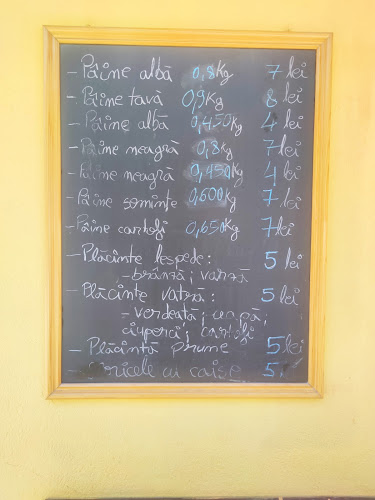 - Pâine albă 0,8Kg 7 lei
- Pâine tavă 0,9Kg 8 lei
- Pâine albă 0,450Kg 4 lei
- Pâine neagră 0,8Kg 7 lei
- Pâine neagră 0,450Kg 4 lei
- Pâine semințe 0,600Kg 7 lei
- Pâine cartofi 0,650Kg 7 lei
- Plăcinte lespede: 5 lei
- brânză; varză
- Plăcinte vatră: 5 lei
- verdeață; ceapă;
ciuperci; cartofi
- Plăcintă prune 5 lei
cu caise 5